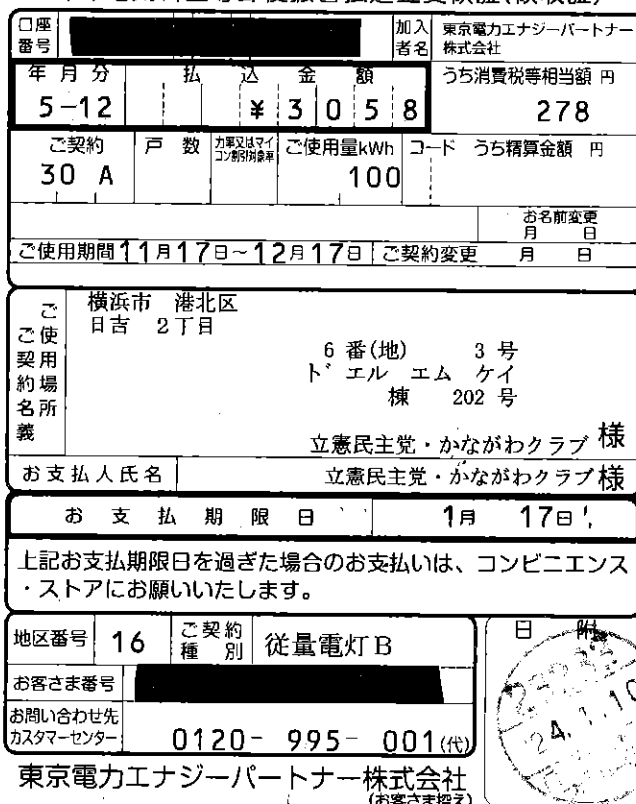 口座番号
加入者名 東京電力エナジーパートナー株式会社
年月分 払込金額 うち消費税等相当額 円
5-12 ¥3058 278
ご契約 戸数 力率又はマイコン割引対象率 ご使用量kWh コード うち精算金額 円
30 A 100
お名前変更
月 日
ご使用期間 11月17日~12月17日 ご契約変更 月 日
ご使用場所
ご契約名義
横浜市 港北区
日吉 2丁目
6 番(地) 3 号
ド エル エム ケイ
棟 202 号
立憲民主党・かながわクラブ 様
お支払人氏名 立憲民主党・かながわクラブ 様
お支払期限日 1月 17日
上記お支払期限日を過ぎた場合のお支払いは、コンビニエンス
・ストアにお願いいたします。
地区番号 16 ご契約種別 従量電灯B
日附
お客さま番号
24.1.10
お問い合わせ先
カスタマーセンター 0120- 995- 001(代)
東京電力エナジーパートナー株式会社
(お客さま控え)